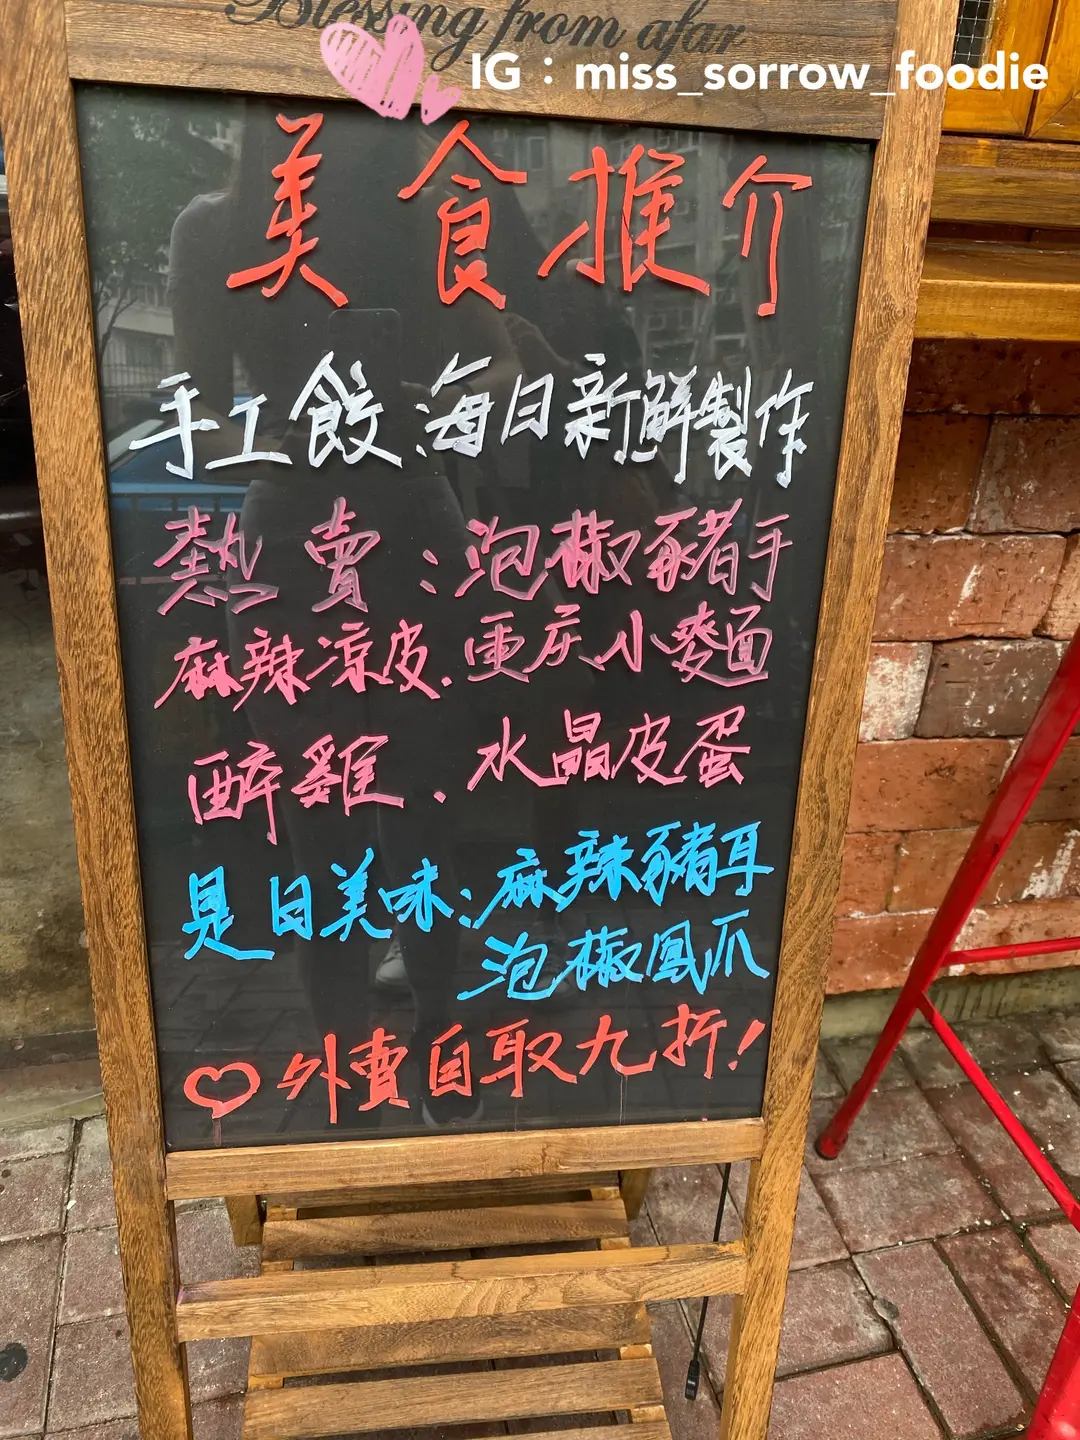 Blessing from afar
IG：miss_sorrow_foodie
美食推介
手工餃：每日新鮮製作
熱賣：泡椒豬手
麻辣涼皮．重庆小麵
醉雞．水晶皮蛋
是日美味：麻辣豬耳
泡椒鳳爪
♡外賣自取九折！